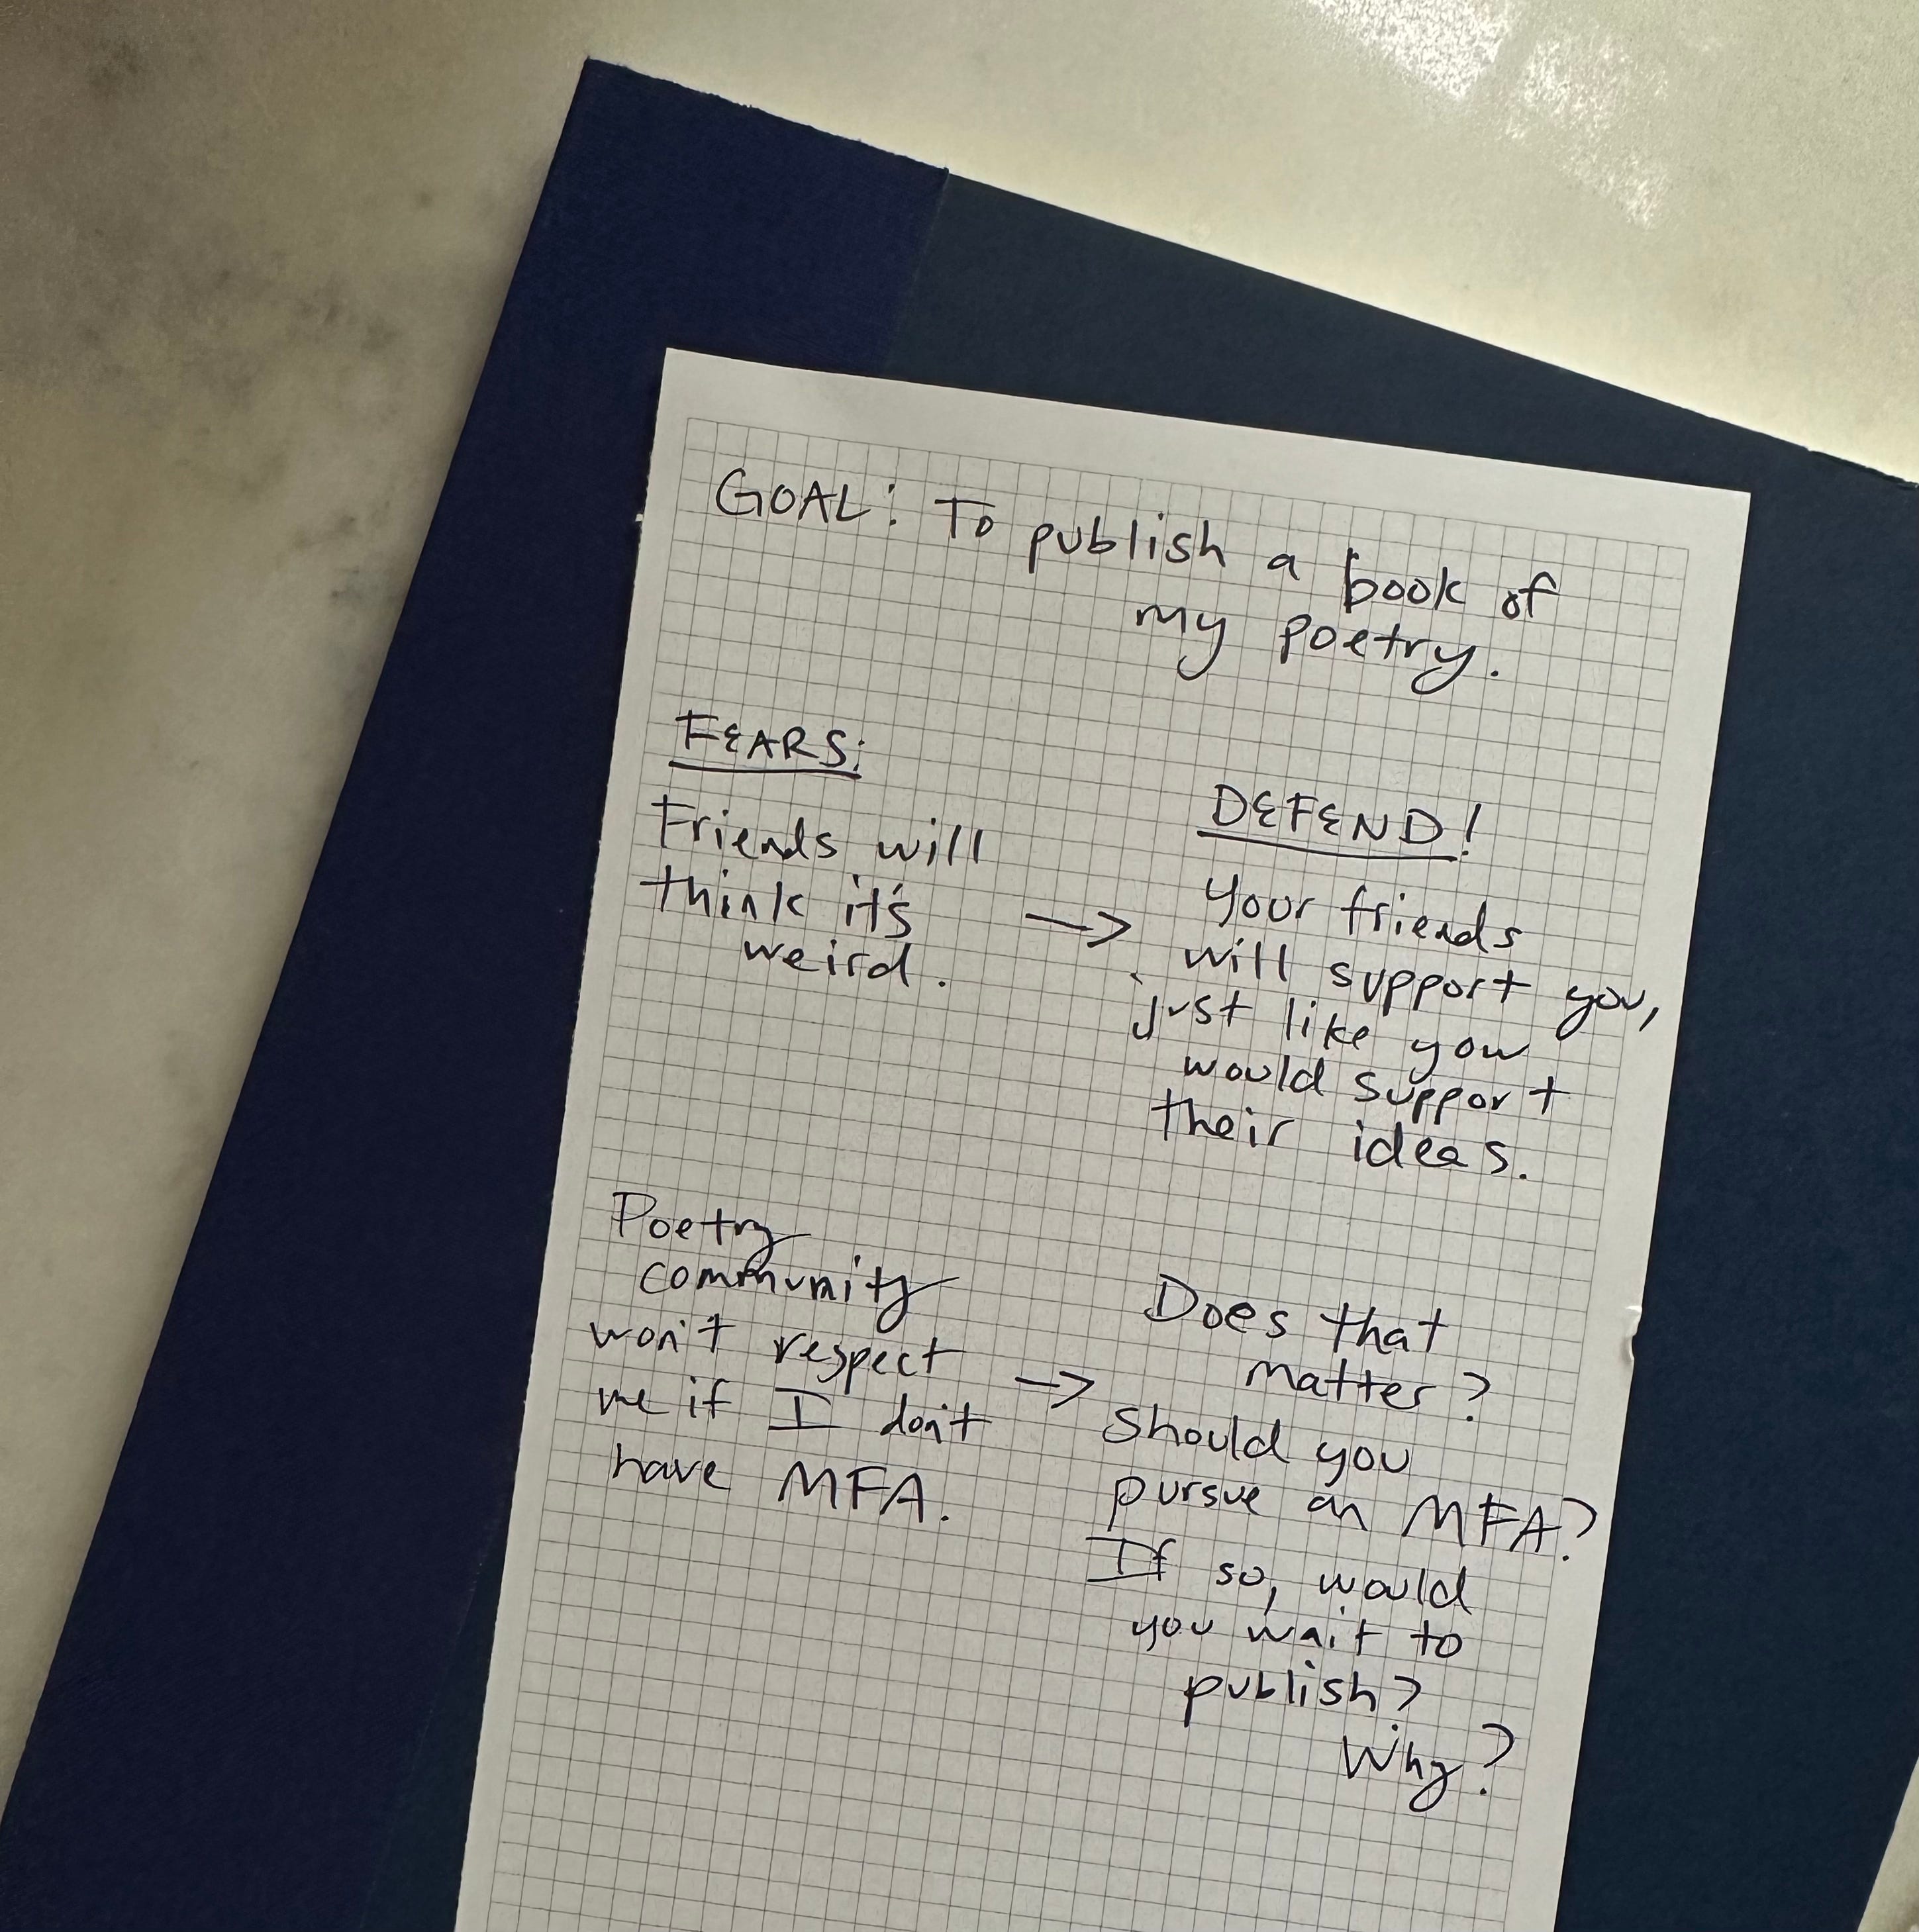 GOAL: To publish a book of
my poetry.
FEARS:
Friends will
think it's
weird.
DEFEND!
Your friends
will support you,
just like you
would support
their ideas.
Poetry
community
won't respect
me if I don't
have MFA.
Does that
matter?
Should you
pursue an MFA?
If so, would
you wait to
publish?
Why?